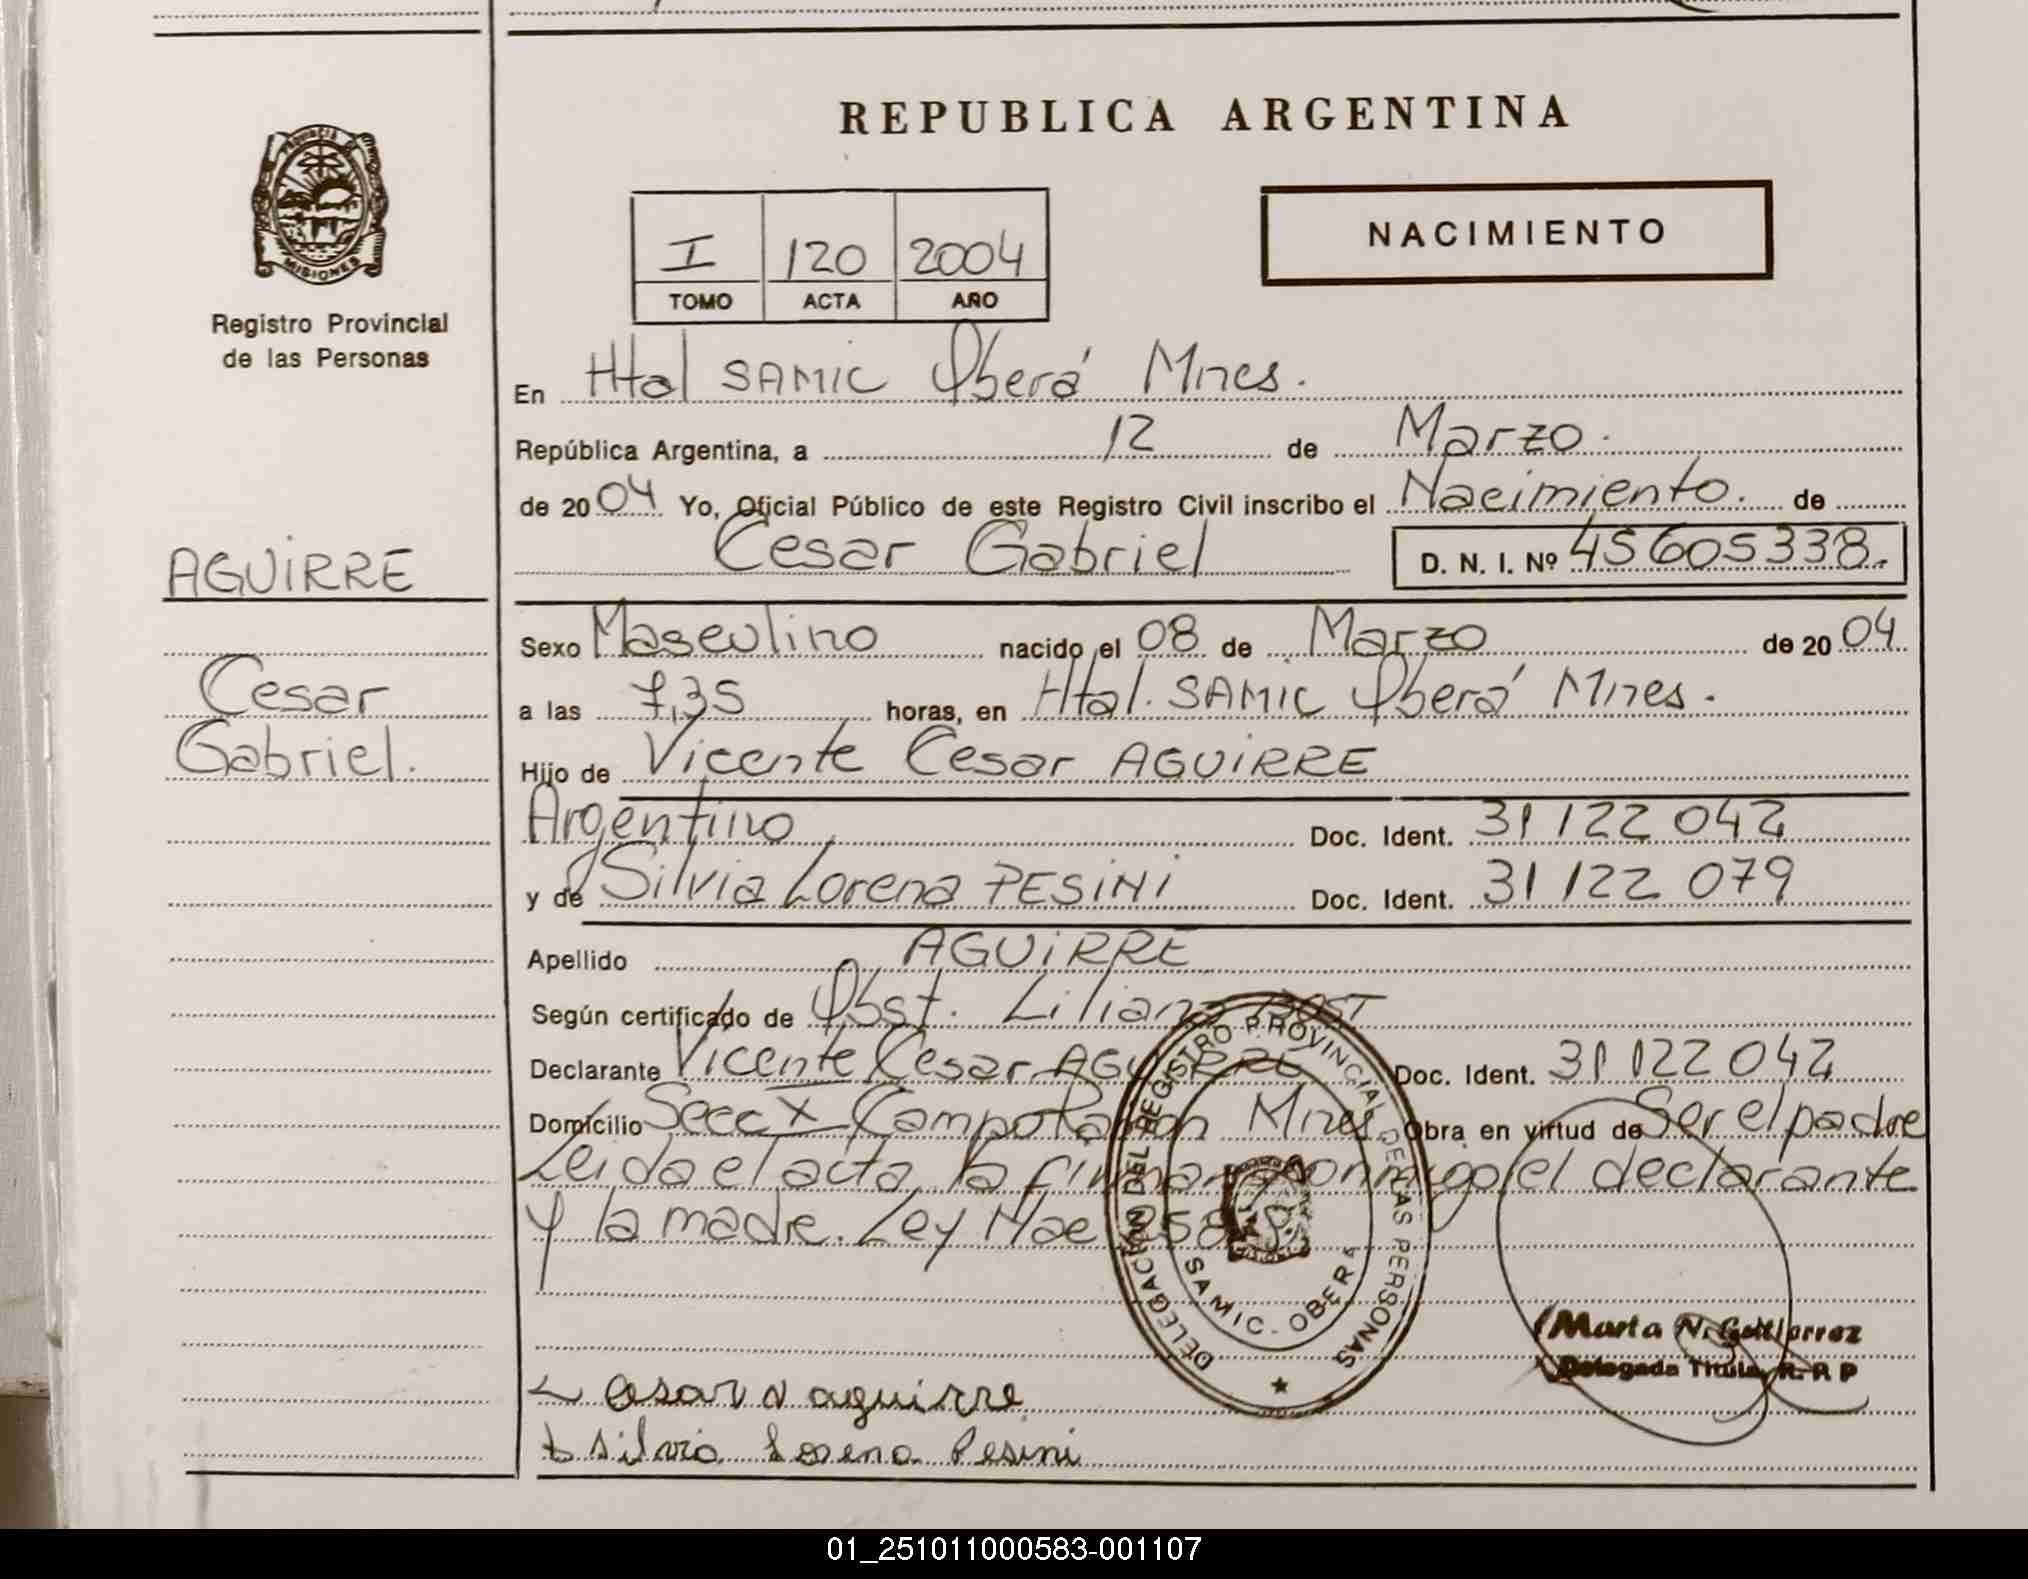 REPUBLICA ARGENTINA
PROVINCIA DE
MISIONES
Registro Provincial
de las Personas
I 120 2004
TOMO ACTA AÑO
NACIMIENTO
En Htal SAMIC Oberá Mnes.
República Argentina, a 12 de Marzo.
de 2004 Yo, Oficial Público de este Registro Civil inscribo el Nacimiento. de
Cesar Gabriel D. N. I. Nº 45605338.
AGUIRRE
Cesar
Gabriel.
Sexo Masculino nacido el 08 de Marzo de 2004
a las 7,35 horas, en Htal. SAMIC Oberá Mnes.
Hijo de Vicente Cesar AGUIRRE
Argentino Doc. Ident. 31 122 042
y de Silvia Lorena PESINI Doc. Ident. 31 122 079
Apellido AGUIRRE
Según certificado de Obst. Liliana BOST
Declarante Vicente Cesar AGUIRRE Doc. Ident. 31 122 042
Domicilio Secc X Campo Ramon Mnes Obra en virtud de Ser el padre
Leida el acta, la firman conmigo el declarante
y la madre. Ley Nac
DELEGACION DEL REGISTRO PROVINCIAL DE LAS PERSONAS
SAMIC - OBERA
Marta N. Gutierrez
Delegada Titular R. R P
Cesar V aguirre
Silvia Lorena Pesini
01_251011000583-001107